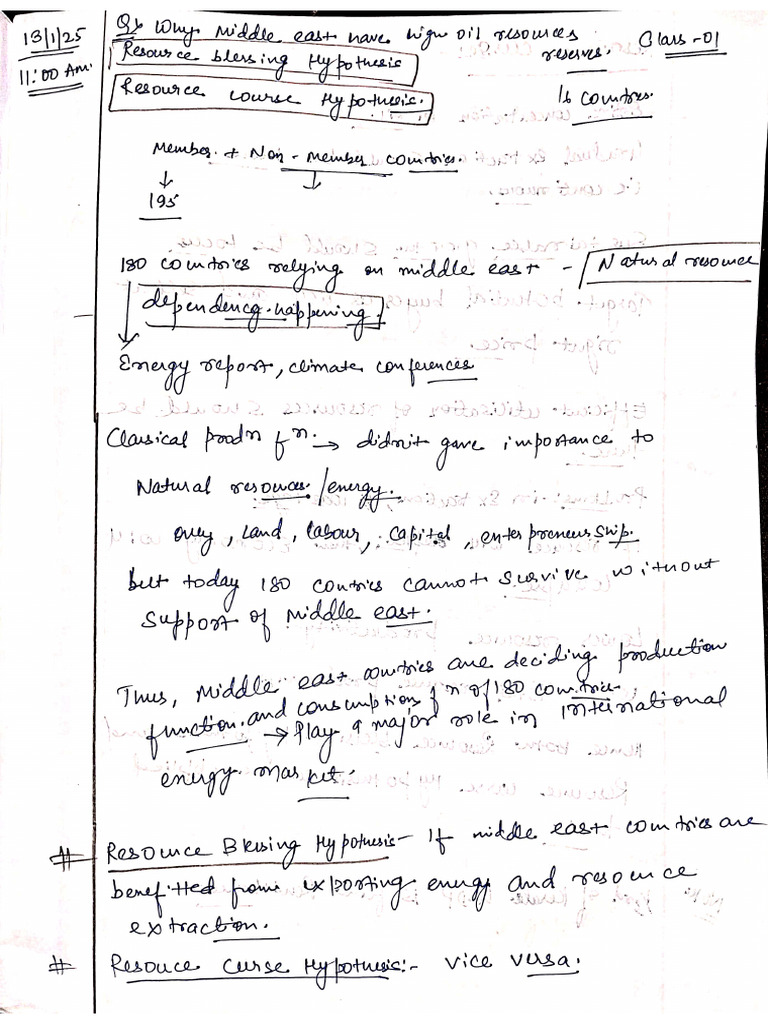 13/1/25
11:00 Am.
Q> Why Middle east have high oil resources
reserves.
Class-01
Resource blessing Hypothesis
Resource course Hypothesis.
16 countries.
Member + Non-member countries.
195
180 countries relying on middle east - Natural resource
dependency happening.
Energy report, climate conferences
Classical prodn fn. → didn't gave importance to
Natural resources/energy.
only, Land, labour, capital, enterpreneurship.
but today 180 contries cannot survive without
support of Middle east.
Thus, Middle east countries are deciding production
function and consumption fn of 180 countries.
→ Play a major role in international
energy market.
# Resource Blessing Hypothesis - If middle east countries are
benefitted from exporting energy and resource
extraction.
# Resouce Curse Hypothesis:- vice versa.